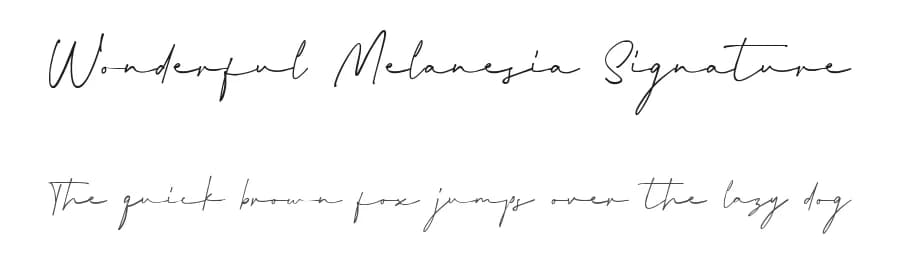 Wonderful Melanesia Signature
The quick brown fox jumps over the lazy dog